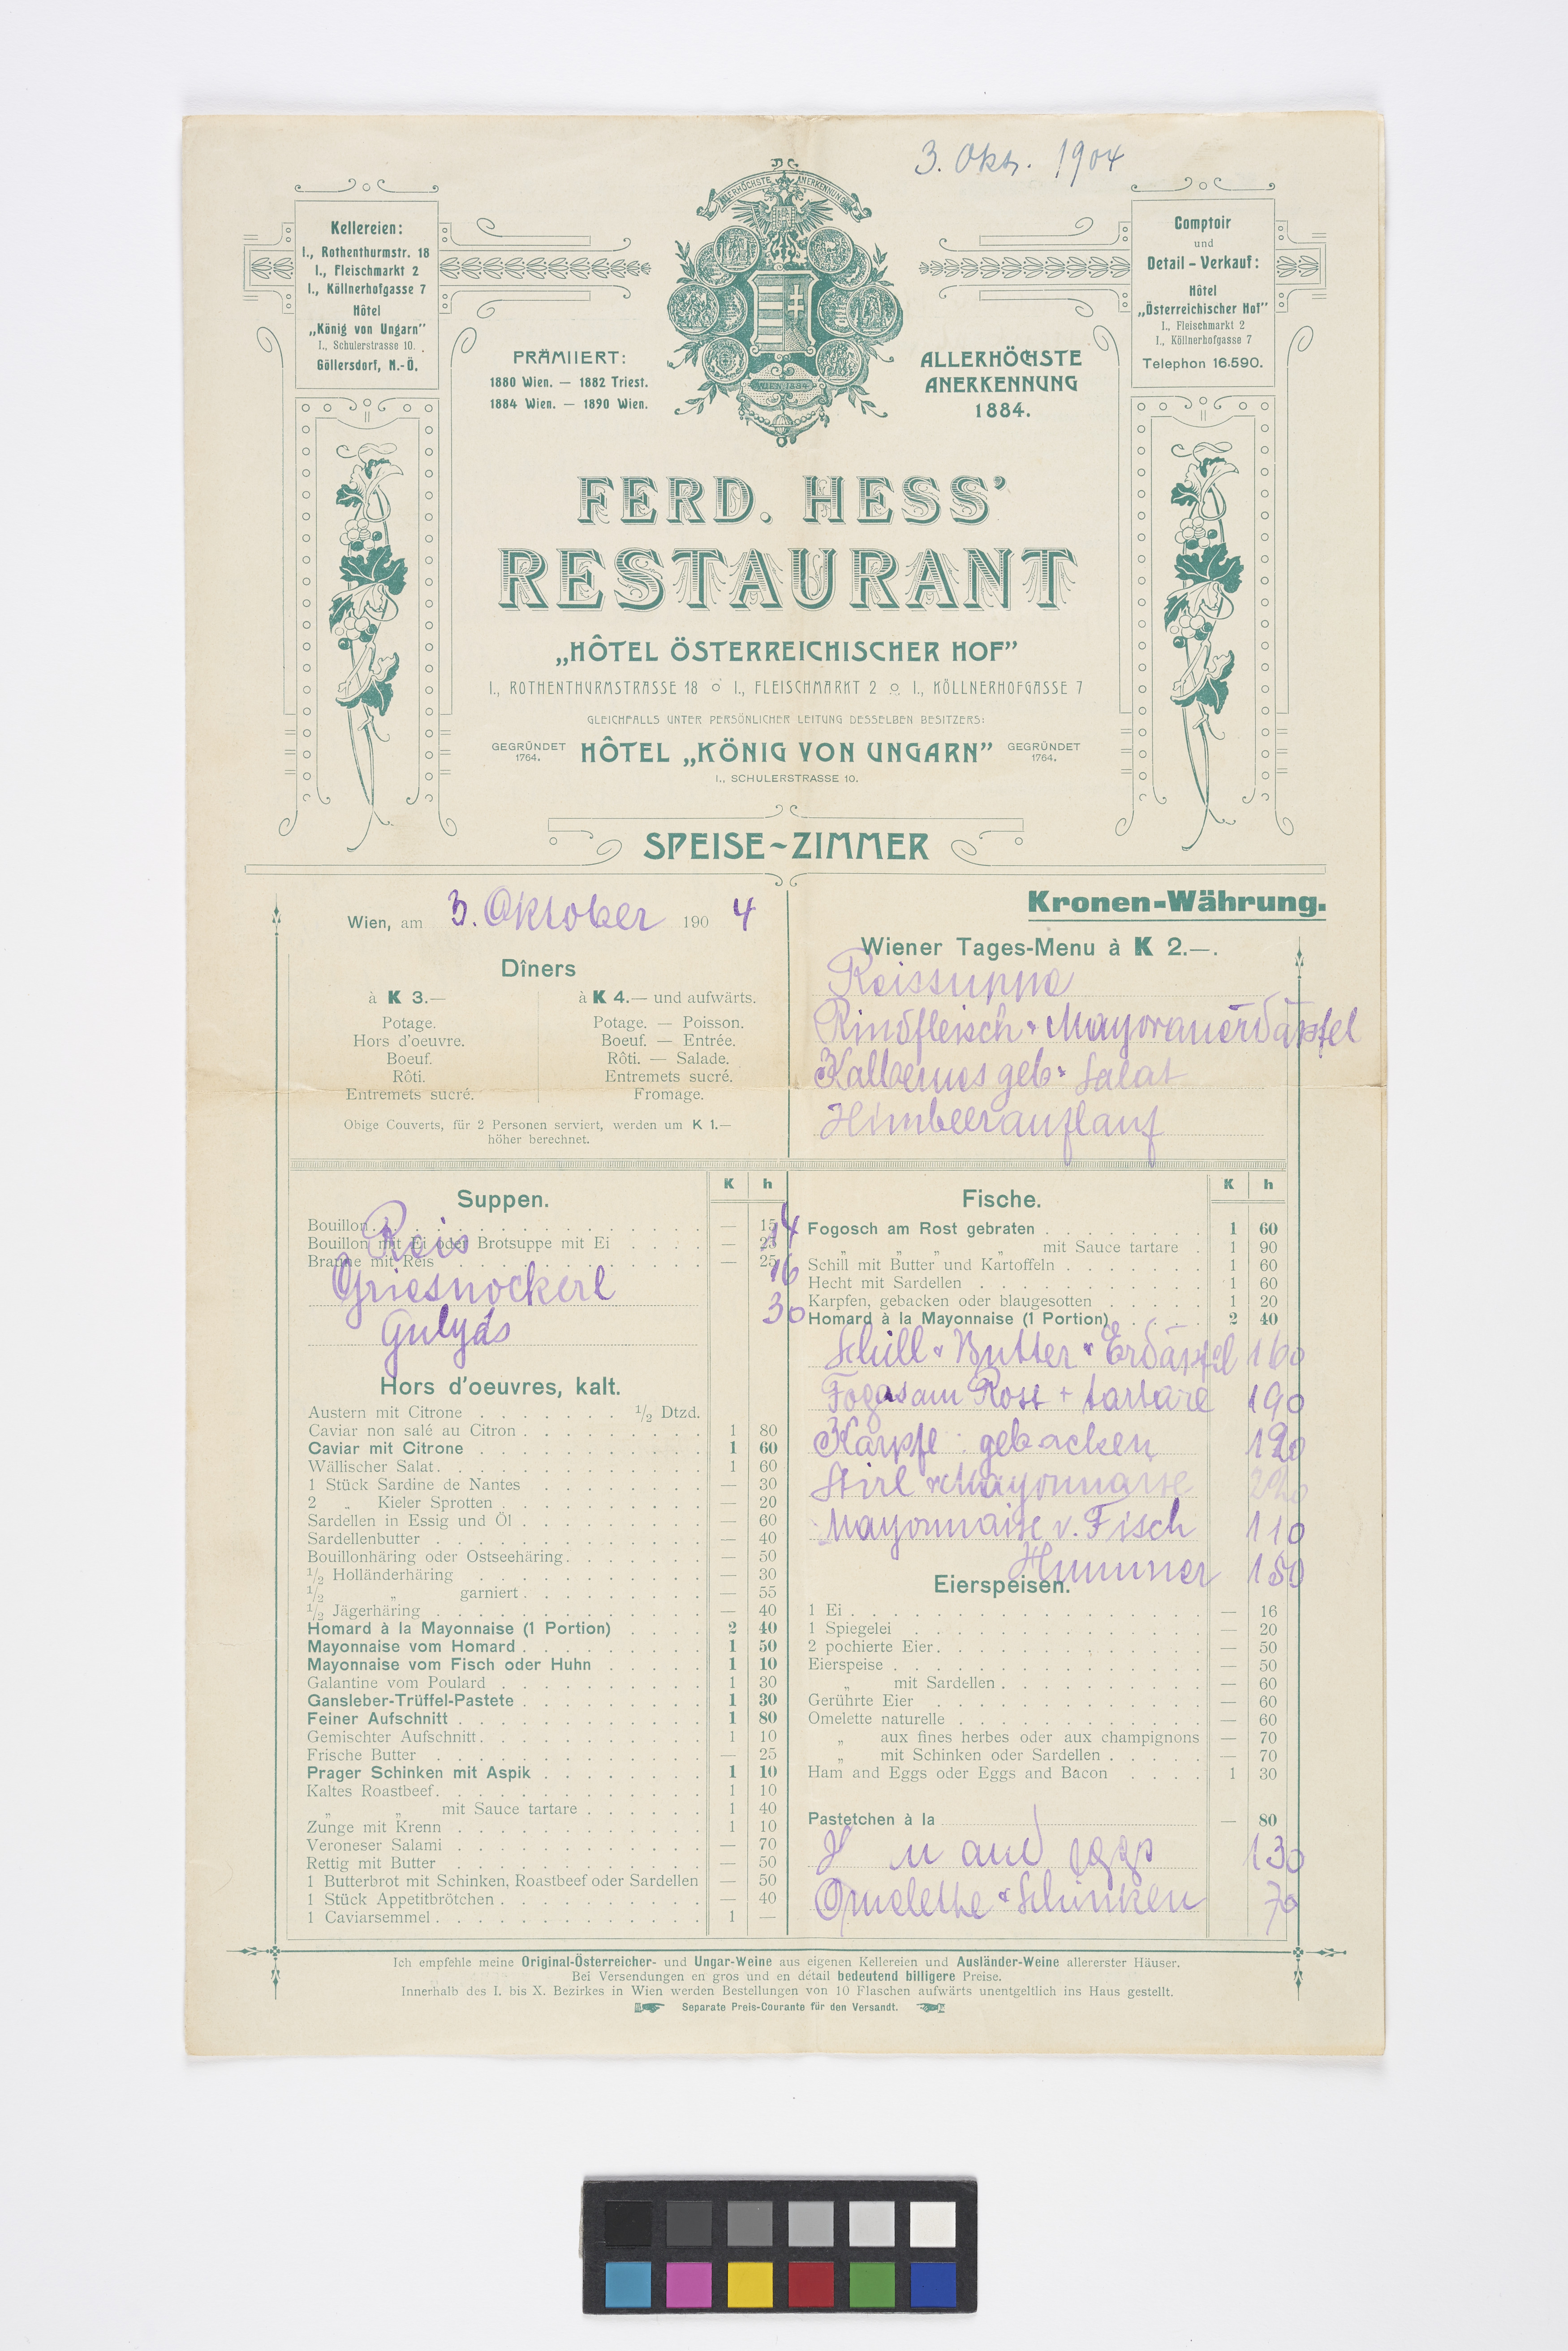 3. Okt. 1904
Kellereien:
I., Rothenthurmstr. 18
I., Fleischmarkt 2
I., Köllnerhofgasse 7
Hôtel
„König von Ungarn"
I., Schulerstrasse 10.
Göllersdorf, N.-Ö.
ALLERHÖCHSTE ANERKENNUNG
WIEN 1884
PRÄMIIERT:
1880 Wien. — 1882 Triest.
1884 Wien. — 1890 Wien.
ALLERHÖCHSTE
ANERKENNUNG
1884.
Comptoir
und
Detail-Verkauf:
Hôtel
„Österreichischer Hof"
I., Fleischmarkt 2
I., Köllnerhofgasse 7
Telephon 16.590.
FERD. HESS'
RESTAURANT
„HÔTEL ÖSTERREICHISCHER HOF"
I., ROTHENTHURMSTRASSE 18 o I., FLEISCHMARKT 2 o I., KÖLLNERHOFGASSE 7
GLEICHFALLS UNTER PERSÖNLICHER LEITUNG DESSELBEN BESITZERS:
GEGRÜNDET 1764. HÔTEL „KÖNIG VON UNGARN" GEGRÜNDET 1764.
I., SCHULERSTRASSE 10.
SPEISE~ZIMMER
Wien, am 3. Oktober 1904
Dîners
à K 3.—
Potage.
Hors d'oeuvre.
Boeuf.
Rôti.
Entremets sucré.
à K 4.— und aufwärts.
Potage. — Poisson.
Boeuf. — Entrée.
Rôti. — Salade.
Entremets sucré.
Fromage.
Obige Couverts, für 2 Personen serviert, werden um K 1.—
höher berechnet.
Kronen-Währung.
Wiener Tages-Menu à K 2.—.
Reissuppe
Rindfleisch + Mayoranerdäpfel
Kalbernes geb + Salat
Himbeerauflauf
Suppen. K h
Bouillon — 15
Bouillon mit Ei oder Brotsuppe mit Ei — 25
Braune mit Reis — 25
Reis 14
Griesnockerl 16
Gulyás 30
Hors d'oeuvres, kalt.
Austern mit Citrone 1/2 Dtzd.
Caviar non salé au Citron 1 80
Caviar mit Citrone 1 60
Wällischer Salat 1 60
1 Stück Sardine de Nantes — 30
2 „ Kieler Sprotten — 20
Sardellen in Essig und Öl — 60
Sardellenbutter — 40
Bouillonhäring oder Ostseehäring — 50
1/2 Holländerhäring — 30
1/2 „ garniert — 55
1/2 Jägerhäring — 40
Homard à la Mayonnaise (1 Portion) 2 40
Mayonnaise vom Homard 1 50
Mayonnaise vom Fisch oder Huhn 1 10
Galantine vom Poulard 1 30
Gansleber-Trüffel-Pastete 1 30
Feiner Aufschnitt 1 80
Gemischter Aufschnitt 1 10
Frische Butter — 25
Prager Schinken mit Aspik 1 10
Kaltes Roastbeef 1 10
„ „ mit Sauce tartare 1 40
Zunge mit Krenn 1 10
Veroneser Salami — 70
Rettig mit Butter — 50
1 Butterbrot mit Schinken, Roastbeef oder Sardellen — 50
1 Stück Appetitbrötchen — 40
1 Caviarsemmel 1 —
Fische. K h
Fogosch am Rost gebraten 1 60
„ „ „ „ mit Sauce tartare 1 90
Schill mit Butter und Kartoffeln 1 60
Hecht mit Sardellen 1 60
Karpfen, gebacken oder blaugesotten 1 20
Homard à la Mayonnaise (1 Portion) 2 40
Schill + Butter + Erdäpfel 160
Fogas am Rost + tartare 190
Karpfe : gebacken 120
Stirl + Mayonnaise
Mayonnaise v. Fisch 110
Hummer 150
Eierspeisen.
1 Ei — 16
1 Spiegelei — 20
2 pochierte Eier — 50
Eierspeise — 50
„ mit Sardellen — 60
Gerührte Eier — 60
Omelette naturelle — 60
„ aux fines herbes oder aux champignons — 70
„ mit Schinken oder Sardellen — 70
Ham and Eggs oder Eggs and Bacon 1 30
Pastetchen à la — 80
and eggs 130
Omelette + Schinken 70
Ich empfehle meine Original-Österreicher- und Ungar-Weine aus eigenen Kellereien und Ausländer-Weine allererster Häuser.
Bei Versendungen en gros und en détail bedeutend billigere Preise.
Innerhalb des I. bis X. Bezirkes in Wien werden Bestellungen von 10 Flaschen aufwärts unentgeltlich ins Haus gestellt.
Separate Preis-Courante für den Versandt.